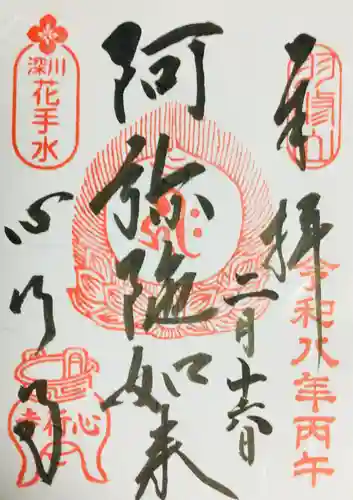 奉拝
令和八年丙午
二月十六日
阿弥陀如来
深川
花手水
心行寺
心行寺